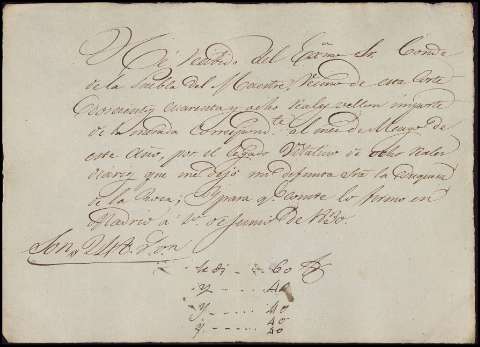 He recibido del Exmo. Sr. Conde
de la Puebla del Maestre, vecino de esta Corte
doscientos y cuarenta y ocho reales vellon importe
de la mesada correspond.te al mes de Mayo de
este Año, por el legado Vitalicio de ocho reales
diarios que me dejó mi difunta Sra. la Duquesa
de la Roca; y para q.e conste lo firmo en
Madrid á 1.o de Junio de 1830.
Son 248 r.s on
60
y 40
y 40
y 40